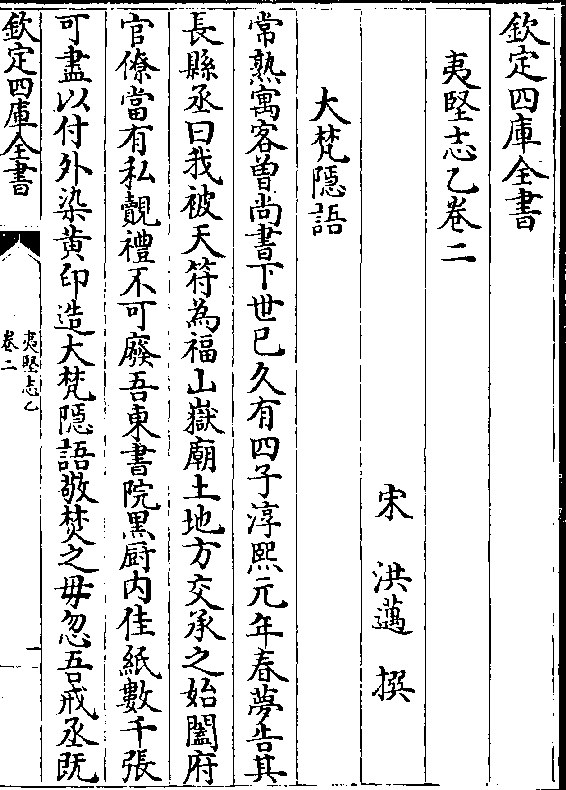 欽定四庫全書
夷堅志乙卷二
宋 洪邁 撰
大梵隱語
常熟寓客曾尚書下世已久有四子淳熙元年春夢告其
長縣丞曰我被天符為福山嶽廟土地方交承之始闔府
官僚當有私覿禮不可廢吾東書院黑厨内佳紙數千張
可盡以付外染黄印造大梵隱語敬焚之毋忽吾戒丞既
欽定四庫全書
夷堅志乙
卷二
一